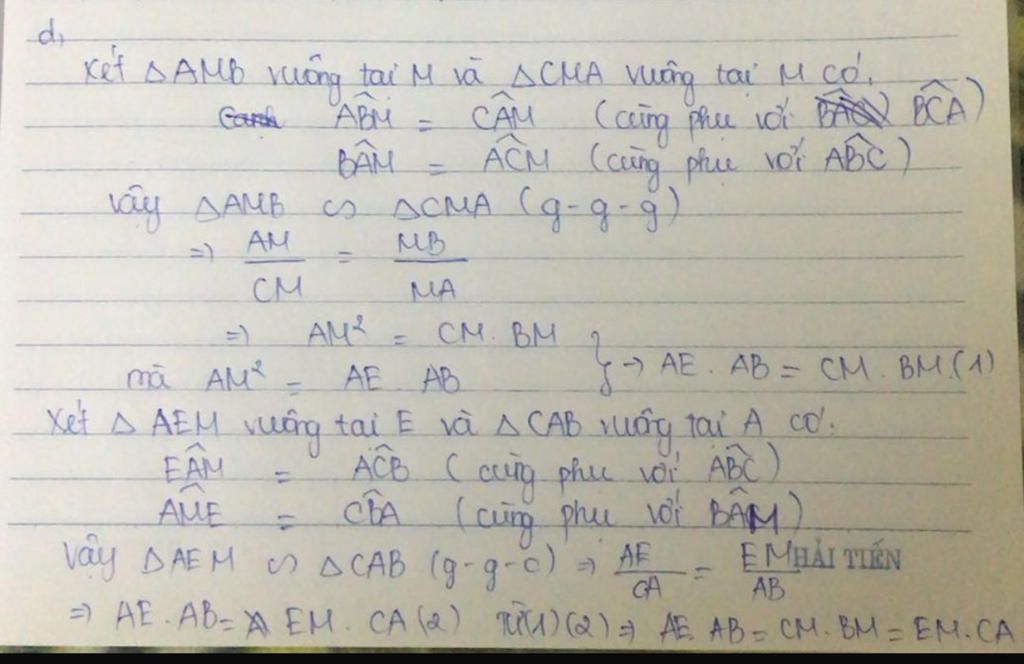 d,
Xét △AMB vuông tại M và △CMA vuông tại M có.
ABM̂ = CÂM (cùng phụ với BĈA)
BÂM = AĈM (cùng phụ với AB̂C)
Vậy △AMB ∽ △CMA (g-g-g)
=> AM/CM = MB/MA
=> AM² = CM. BM
mà AM² = AE AB } → AE. AB = CM. BM.(1)
Xét △ AEM vuông tại E và △CAB vuông tại A có.
EÂM = AĈB (cùng phụ với AB̂C)
AM̂E = CB̂A (cùng phụ với BÂM)
Vậy △AEM ∽ △CAB (g-g-c) => AE/CA = EM/AB
HẢI TIẾN
=> AE. AB= EM. CA(2) Từ(1)(2)=> AE. AB= CM. BM = EM.CA